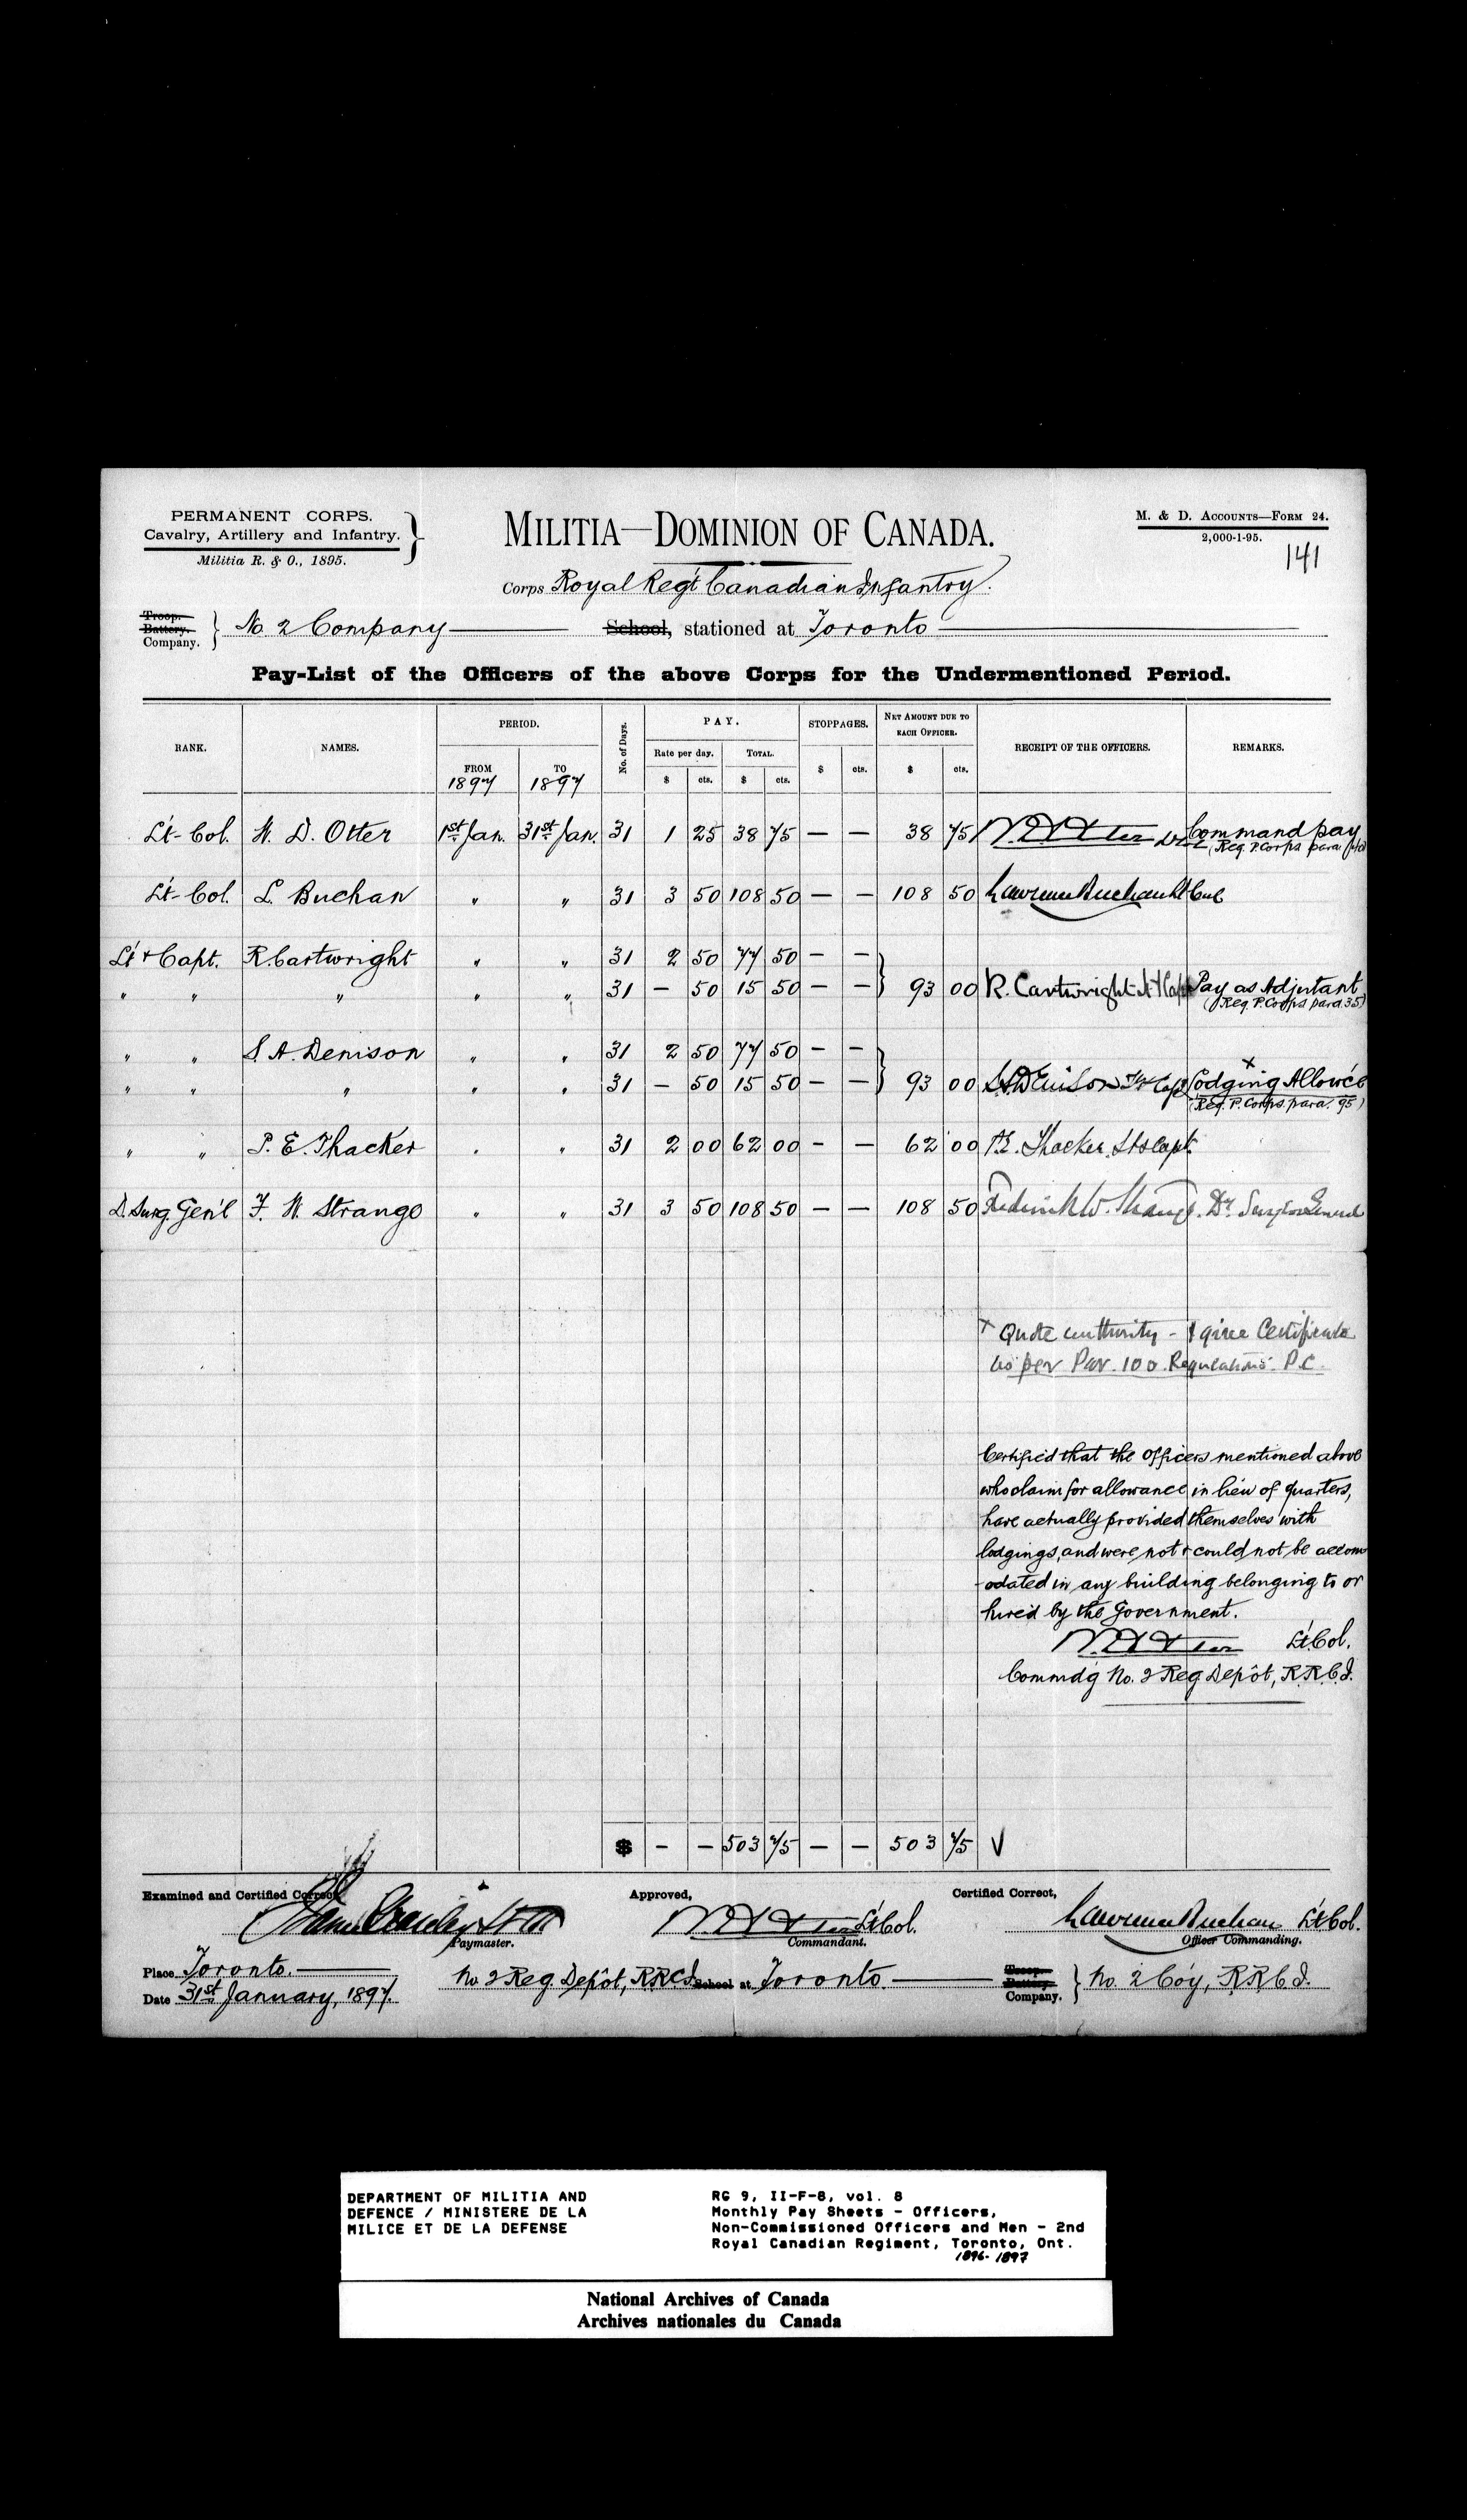 PERMANENT CORPS.
Cavalry, Artillery and Infantry.
Militia R. & O., 1895.
MILITIA—DOMINION OF CANADA.
M. & D. ACCOUNTS—FORM 24.
2,000-1-95.
141
Corps Royal Reg't Canadian Infantry.
Troop.
Battery.
Company.
No. 2 Company
School, stationed at Toronto
Pay-List of the Officers of the above Corps for the Undermentioned Period.
RANK. NAMES. PERIOD. FROM 1897 TO 1897 No. of Days. PAY. Rate per day. $ cts. TOTAL. $ cts. STOPPAGES. $ cts. NET AMOUNT DUE TO EACH OFFICER. $ cts. RECEIPT OF THE OFFICERS. REMARKS.
Lt-Col. W. D. Otter 1st Jan. 31st Jan. 31 1 25 38 75 — — 38 75 W. D. Otter Command pay
(Reg. P. Corps para
Lt-Col. L. Buchan " " 31 3 50 108 50 — — 108 50 Lawrence Buchan Lt Col
Lt & Capt. R. Cartwright " " 31 2 50 77 50 — —
" " " " " 31 — 50 15 50 — — } 93 00 R. Cartwright Lt & Capt Pay as Adjutant
(Reg. P. Corps para 35)
" " S. A. Denison " " 31 2 50 77 50 — —
" " " " " 31 — 50 15 50 — — } 93 00 S. A. Denison Lt & Capt x Lodging Allow'ce
(Reg. P. Corps. para. 95)
" " P. E. Thacker " " 31 2 00 62 00 — — 62 00 P. E. Thacker. Lt & Capt.
D. Surg. Gen'l F. W. Strange " " 31 3 50 108 50 — — 108 50 Frederick W. Strange. Dy. Surgeon General
x Quote authority - & give Certificate
as per Par. 100. Regulations. P.C.
Certified that the Officers mentioned above
who claim for allowance in lieu of quarters,
have actually provided themselves with
lodgings, and were not & could not be accom
-odated in any building belonging to or
hired by the Government.
W. D. Otter Lt. Col.
Commd'g No. 2 Reg. Depôt, R.R.C.I.
$ — — 503 75 — — 503 75 V
Examined and Certified Correct,
Paymaster.
Approved,
W. D. Otter Lt Col.
Commandant.
Certified Correct,
Lawrence Buchan Lt Col.
Officer Commanding.
Place Toronto.
Date 31st January, 1897.
No. 2 Reg. Depôt, R.R.C.I. School at Toronto.
Troop.
Battery.
Company.
} No. 2 Co'y, R.R.C.I.
DEPARTMENT OF MILITIA AND
DEFENCE / MINISTERE DE LA
MILICE ET DE LA DEFENSE
RG 9, II-F-8, vol. 8
Monthly Pay Sheets - Officers,
Non-Commissioned Officers and Men - 2nd
Royal Canadian Regiment, Toronto, Ont.
1896-1897
National Archives of Canada
Archives nationales du Canada